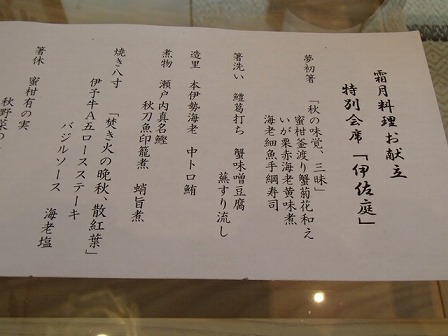 霜月料理お献立
特別会席「伊佐庭」
夢初箸 「秋の味覚、三昧」
蜜柑釜渡り蟹菊花和え
いが栗赤海老黄味煮
海老細魚手綱寿司
箸洗い 鱧葛打ち 蟹味噌豆腐
蕪すり流し
造里 本伊勢海老 中トロ鮪
煮物 瀬戸内真名鰹
秋刀魚印籠煮 蛸旨煮
焼き八寸
「焚き火の晩秋、散紅葉」
伊予牛A五ロースステーキ
バジルソース 海老塩
箸休 蜜柑有の実
秋野菜の